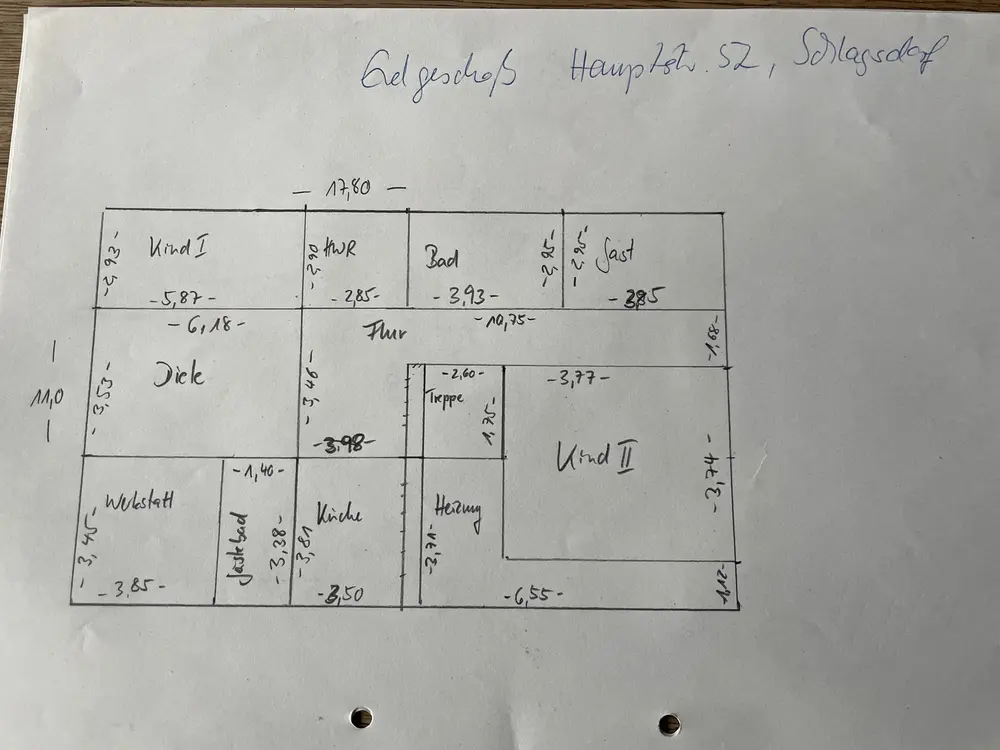 Erdgeschoß Hauptstr. 52, Schlagsdorf
- 17,80 -
Kind I
- 2,93 -
- 5,87 -
HWR
- 2,90
- 2,85 -
Bad
- 2,95 -
- 3,93 -
Gast
- 2,95 -
- 3,85
- 6,18 -
Diele
- 3,53 -
- 11,0 -
Flur
- 10,75 -
- 1,68 -
- 3,46 -
- 3,98 -
- 2,60 -
Treppe
1,75 -
- 3,77 -
Kind II
- 3,74 -
Werkstatt
- 3,45 -
- 3,85 -
- 1,40 -
Gästebad
- 3,38 -
Küche
- 3,81
- 3,50
Heizung
- 3,71 -
- 6,55 -
- 1,12 -